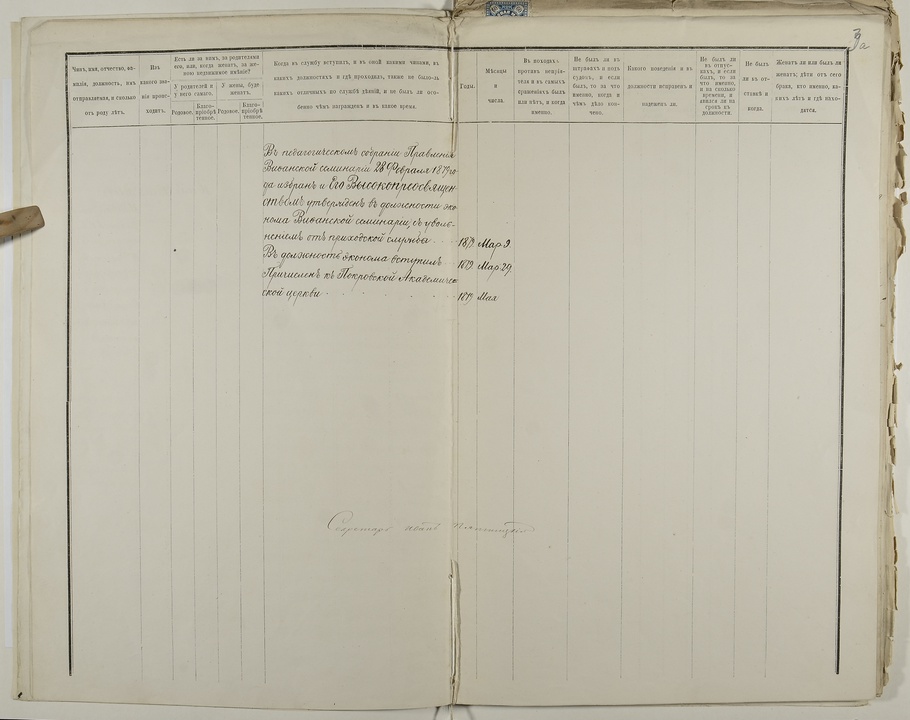 3а
Чинъ, имя, отчество, фа-
милія, должность, имъ
отправляемая, и сколько
отъ роду лѣтъ.
Изъ
какого зва-
нія проис-
ходитъ.
Есть ли за нимъ, за родителями
его, или, когда женатъ, за же-
ною недвижимое имѣніе?
У родителей и
у него самого.
У жены, буде
женатъ.
Родовое.
Благо-
пріобрѣ-
тенное.
Родовое.
Благо-
пріобрѣ-
тенное.
Когда въ службу вступилъ, и въ оной какими чинами, въ
какихъ должностяхъ и гдѣ проходилъ, также не было-ль
какихъ отличныхъ по службѣ дѣяній, и не былъ ли осо-
бенно чѣмъ награжденъ и въ какое время.
Годы.
Мѣсяцы
и
числа.
Въ походахъ
противъ непрія-
теля и въ самыхъ
сраженіяхъ былъ
или нѣтъ, и когда
именно.
Не былъ ли въ
штрафахъ и подъ
судомъ, и если
былъ, то за что
именно, когда и
чѣмъ дѣло кон-
чено.
Какого поведенія и къ
должности исправенъ и
надеженъ ли.
Не былъ ли
въ отпус-
кахъ, и если
былъ, то за
что именно,
и на сколько
времени, и
явился ли на
срокъ къ
должности.
Не былъ
ли въ от-
ставкѣ и
когда.
Женатъ ли или былъ ли
женатъ; дѣти отъ сего
брака, кто именно, ка-
кихъ лѣтъ и гдѣ нахо-
дятся.
Въ педагогическомъ собраніи Правленія
Виѳанской семинаріи 28 Февраля 1879 го-
да избранъ и Его Высокопреосвящен-
ствомъ утвержденъ въ должности эко-
нома Виѳанской семинаріи, съ уволь-
неніемъ отъ приходской службы 1879. Мар. 9.
Въ должность эконома вступилъ 1879. Мар. 29.
Причисленъ къ Покровской Академиче-
ской церкви 1879 Мая
Секретарь